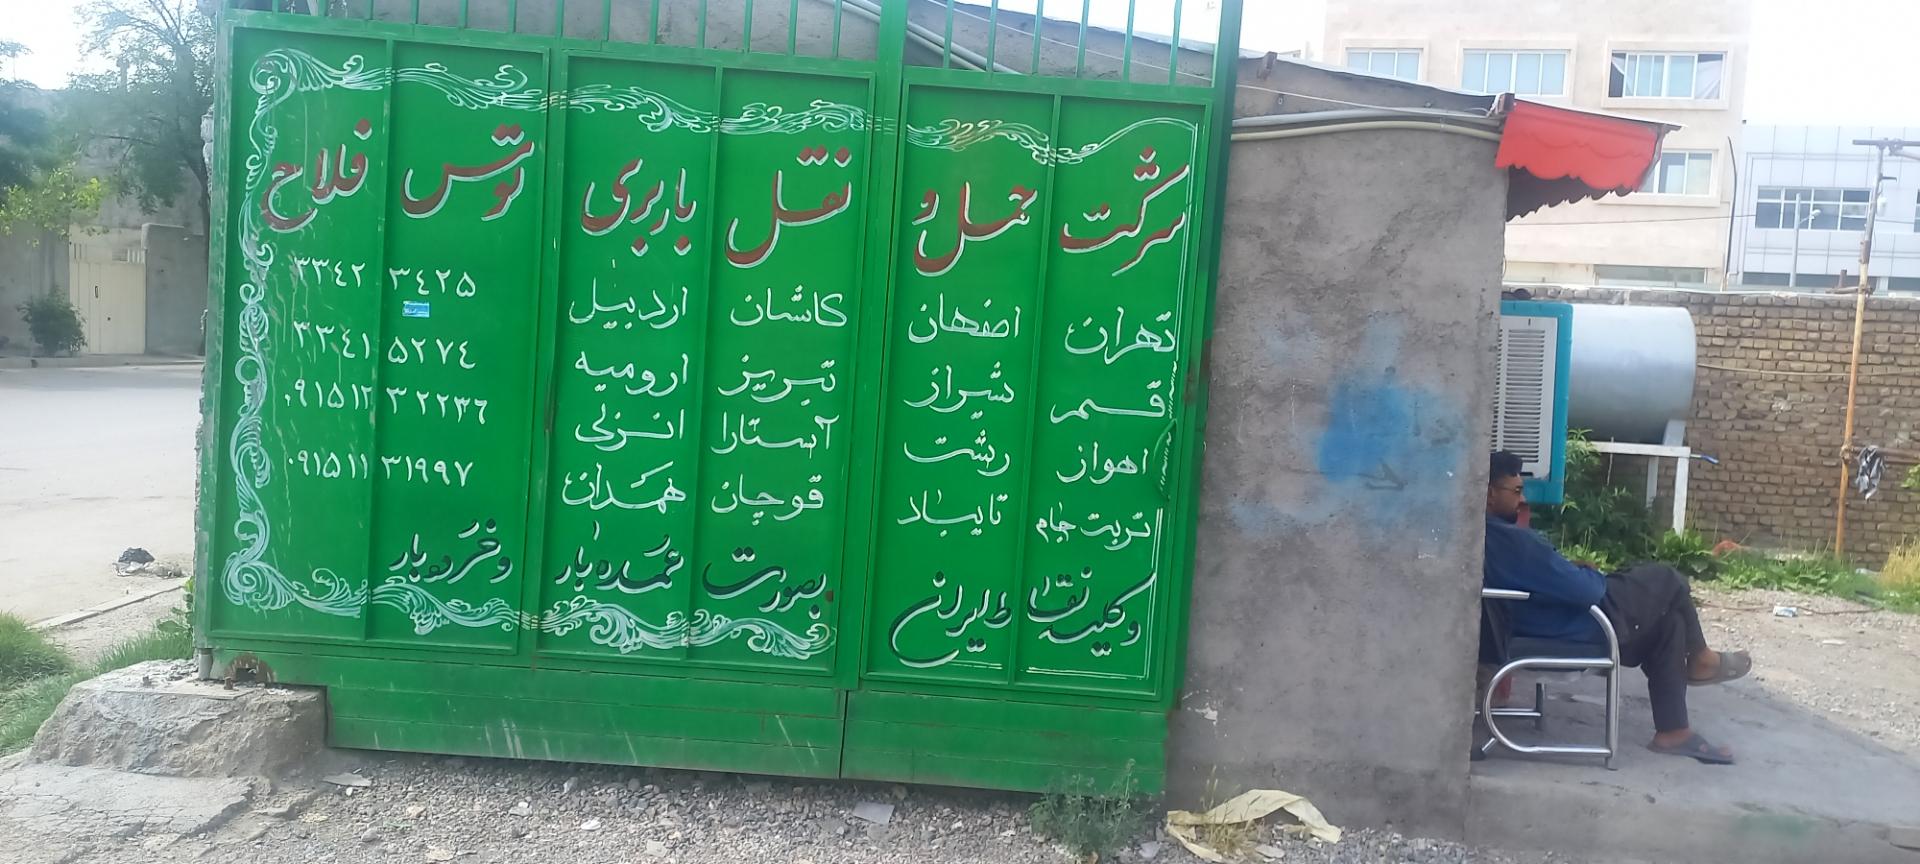 شرکت حمل و نقل باربری توس فلاح
تهران اصفهان کاشان اردبیل ۳۳۴۲ ۳۴۲۵
قم شیراز تبریز ارومیه ۳۳۴۱ ۵۲۷۴
اهواز رشت آستارا انزلی ۰۹۱۵۱۲ ۳۲۲۳۶
تربت جام تایباد قوچان همدان ۰۹۱۵۱۱ ۳۱۹۹۷
و کلیه نقاط ایران بصورت عمده بار و خرده بار